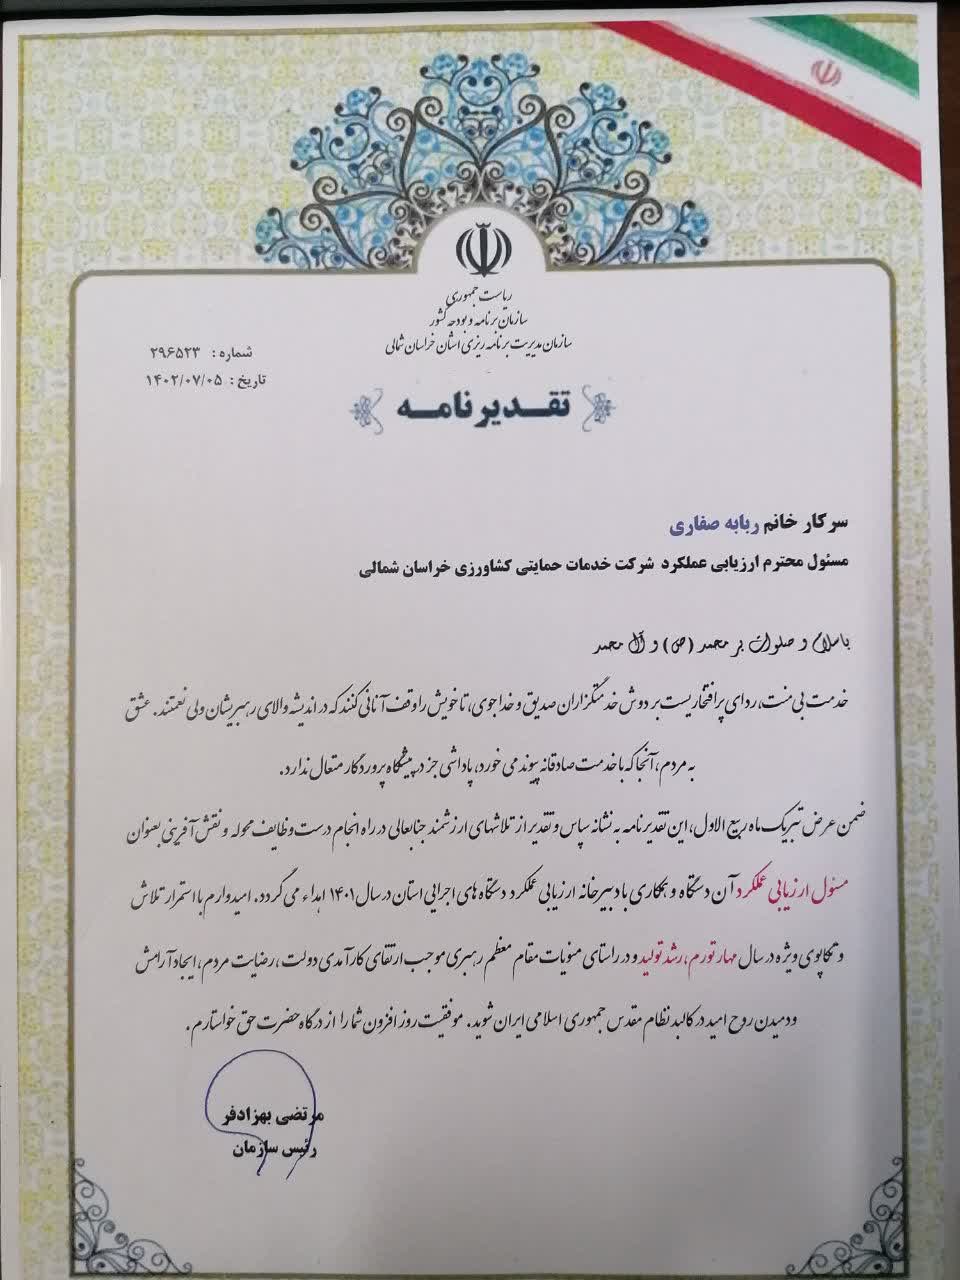 ریاست جمهوری
سازمان برنامه و بودجه کشور
سازمان مدیریت برنامه ریزی استان خراسان شمالی
شماره : ۲۹۶۵۲۳
تاریخ : ۱۴۰۲/۰۷/۰۵
تقدیرنامه
سرکار خانم ربابه صفاری
مسئول محترم ارزیابی عملکرد شرکت خدمات حمایتی کشاورزی خراسان شمالی
باسلام و صلوات بر محمد (ص) و آل محمد
خدمت بی منت، ردای پرافتخاریست بر دوش خدمتگزاران صدیق و خداجوی، تا خویش را وقف آنانی کنند که در اندیشه والای رهبریشان ولی نعمتند. عشق
به مردم، آنجا که با خدمت صادقانه پیوند می خورد، پاداشی جز در پیشگاه پروردگار متعال ندارد.
ضمن عرض تبریک ماه ربیع الاول، این تقدیرنامه به نشانه سپاس و تقدیر از تلاشهای ارزشمند جنابعالی در راه انجام درست وظایف محوله و نقش آفرینی بعنوان
مسئول ارزیابی عملکرد آن دستگاه و همکاری با دبیرخانه ارزیابی عملکرد دستگاه های اجرایی استان در سال ۱۴۰۱ اهداء می گردد. امیدوارم با استمرار تلاش
و تکاپوی ویژه در سال مهار تورم، رشد تولید و در راستای منویات مقام معظم رهبری موجب ارتقای کارآمدی دولت، رضایت مردم، ایجاد آرامش
و دمیدن روح امید در کالبد نظام مقدس جمهوری اسلامی ایران شوید. موفقیت روز افزون شما را از درگاه حضرت حق خواستارم.
مرتضی بهزادفر
رئیس سازمان